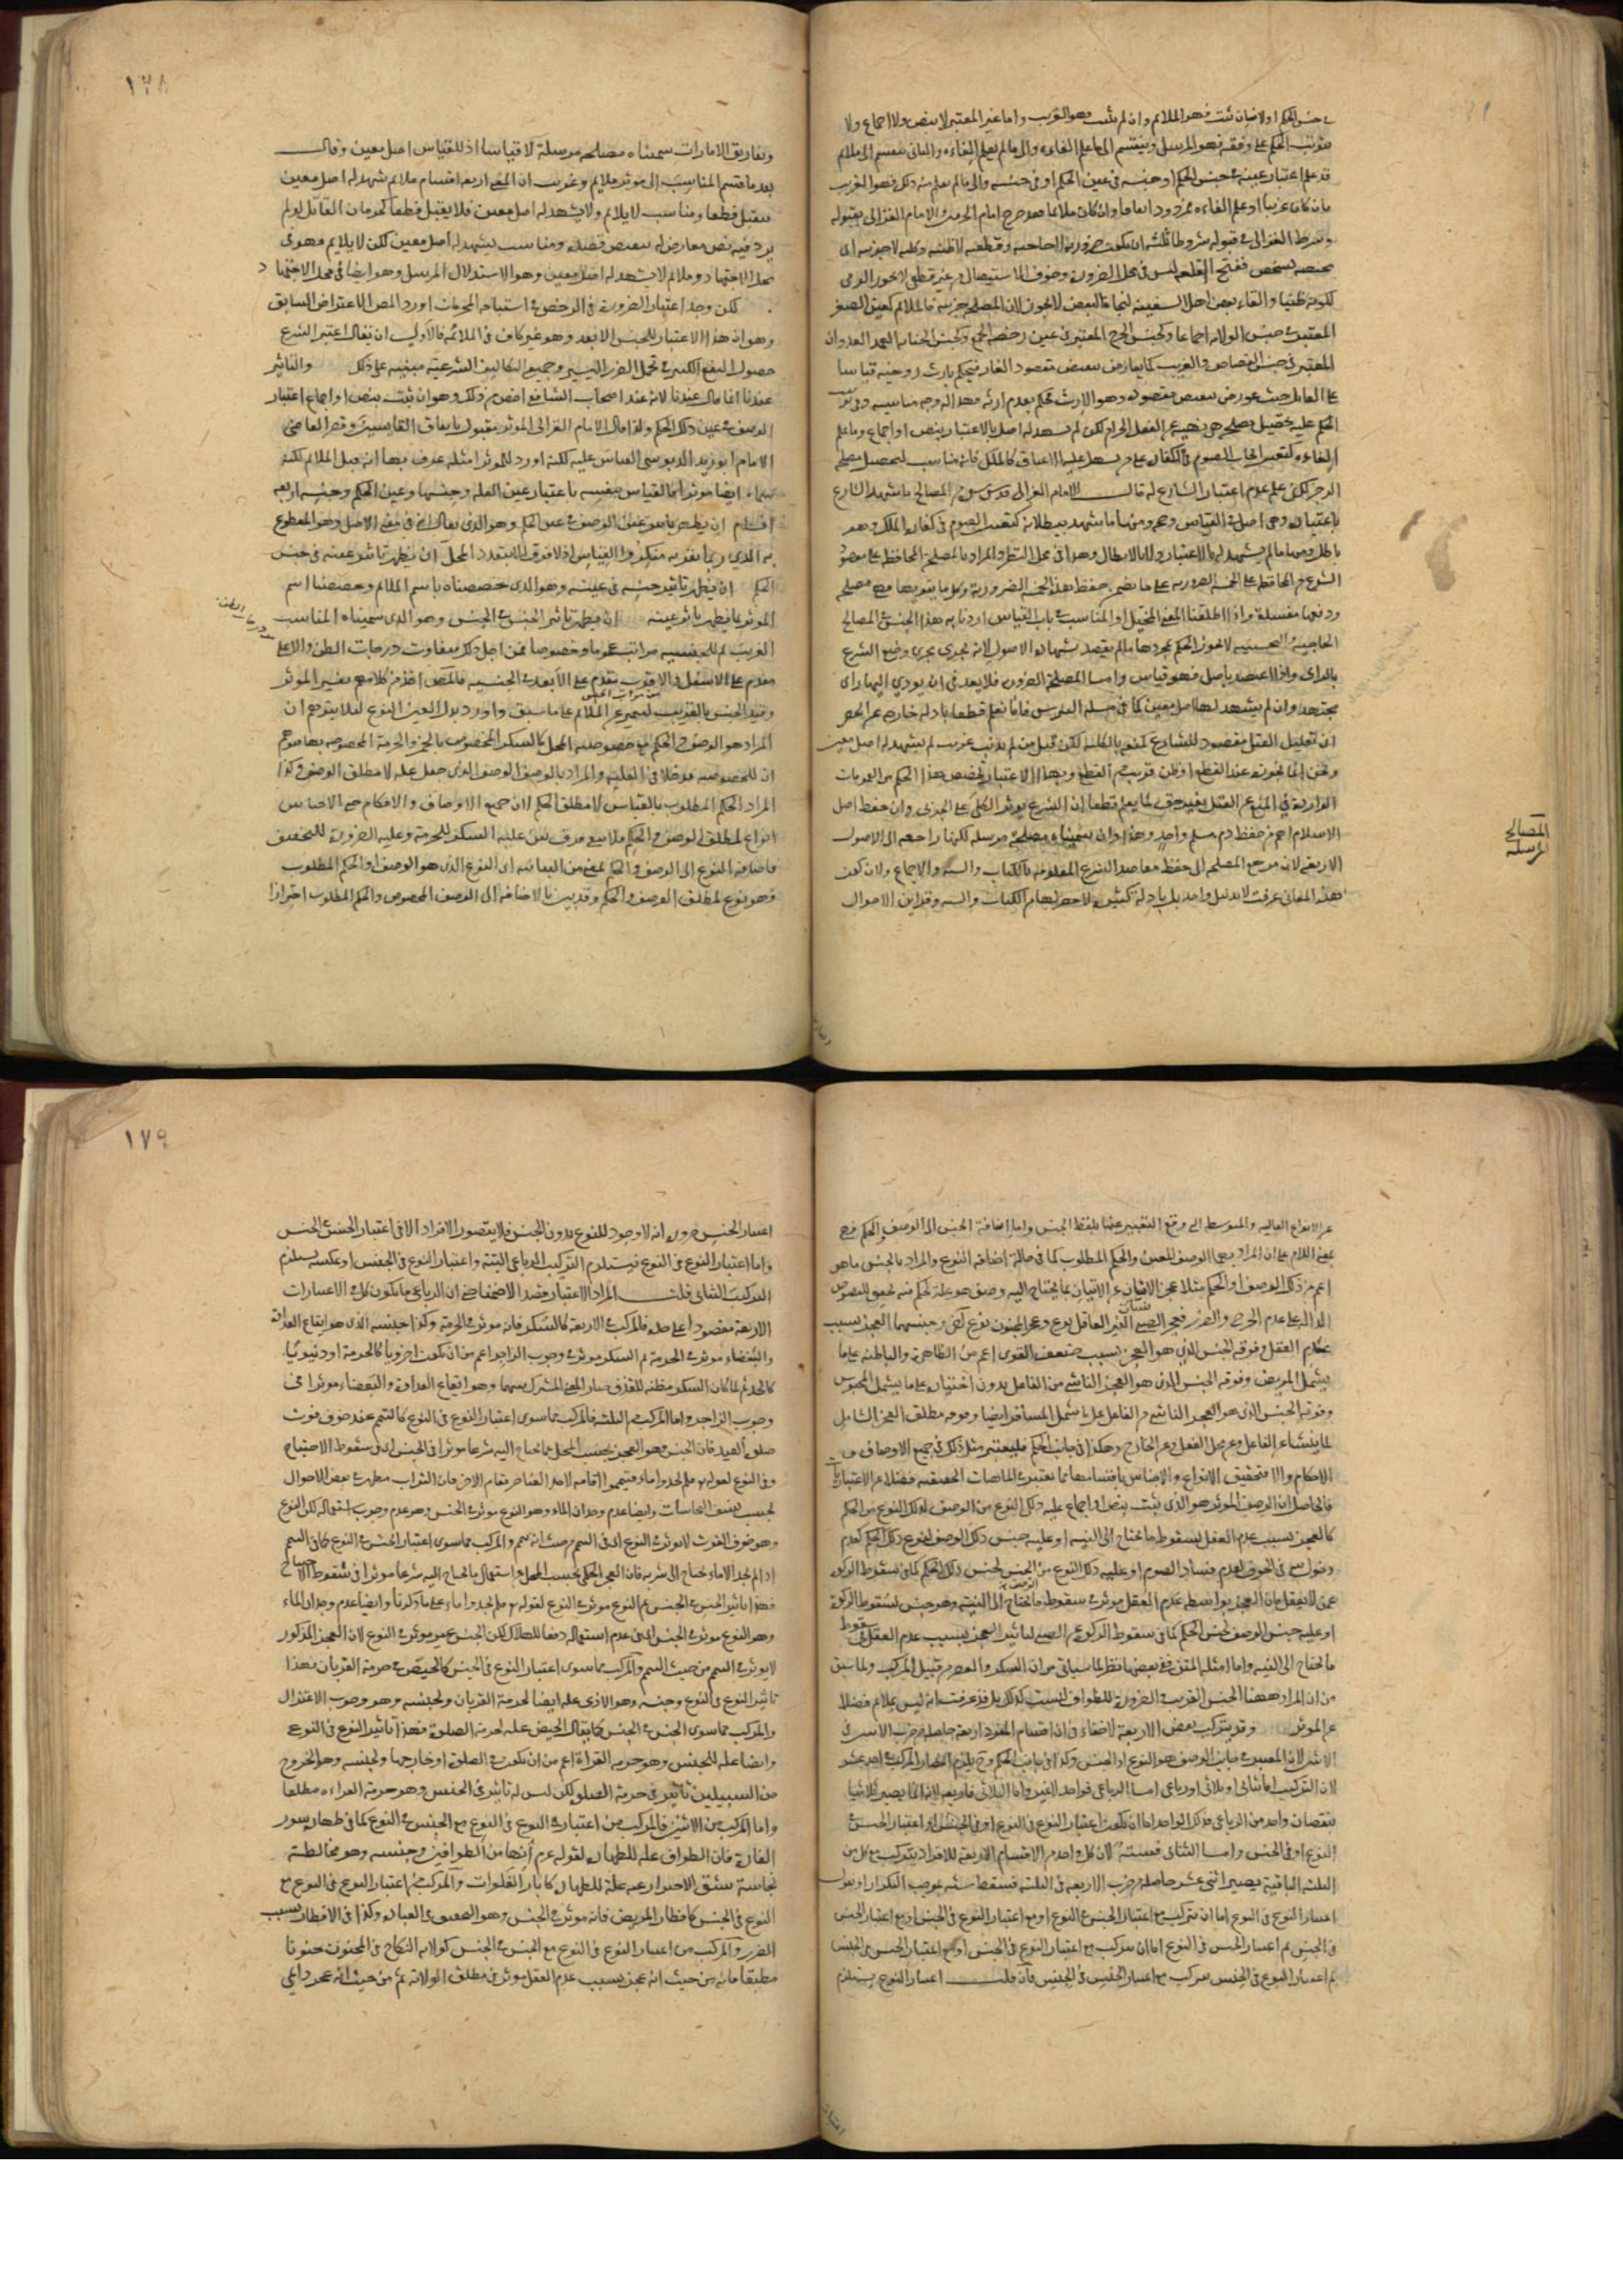 في جنس الحكم اولا فان ثبت فهو الملائم وان لم يثبت فهو الغريب واما غير المعتبر لا بنص ولا اجماع ولا
بترتب الحكم على وفقه فهو المرسل وينقسم الى ما علم الغاءه والى ما لم يعلم الغاءه والثاني ينقسم الى ملائم
قد علم اعتبار عينه في جنس الحكم او جنسه في عين الحكم او في جنسه والى ما لم يعلم منه ذلك فهو الغريب
فان كان غريبا او علم الغاءه فمردود اتفاقا وان كان ملائما فقد صرح امام الحرمين والامام الغزالي بقبوله
وشرط الغزالي في قبوله شروطا ثلثة ان يكون ضرورية لا حاجية وقطعية لا ظنية وكلية لا جزئية اى
مختصة بشخص ففتح القلعة ليس في محل الضرورة وخوف الاستيصال من غير قطع لا يجوز الرمى
لكونه ظنيا والقاء بعض اهل السفينة لنجاة البعض لا يجوز لان المصلحة جزئية فالملائم كعين الصغر
المعتبر في جنس الولاية اجماعا وكجنس الحرج المعتبر في عين رخصة الجمع وكجنس الجناية العمد العدوان
المعتبر في جنس القصاص والغريب كما يعارض بنقيض مقصود الفار فيحكم بارث زوجته قياسا
على القاتل حيث عورض بنقيض مقصوده وهو الارث فحكم بعدم ارثه فهذا له وجه مناسبة وفي ترتب
الحكم عليه تحصيل مصلحة هي نهيه عن الفعل الحرام لكن لم يشهد له اصل بالاعتبار بنص او اجماع وما علم
الغاءه كتعيين ايجاب الصوم في الكفارة على من يسهل عليه الاعتاق كالملك فانه مناسب لتحصيل مصلحة
الزجر لكن علم عدم اعتبار الشارع له قال الامام الغزالي قدس سره من المصالح ما شهد الشارع
باعتباره وهي اصل في القياس وحجة ومنها ما شهد ببطلانه كتعيين الصوم في كفارة الملك وهو
باطل ومنها ما لم يشهد له بالاعتبار ولا بالابطال وهذا في محل النظر والمراد بالمصلحة المحافظة على مقصود
الشرع من المحافظة على الخمسة الضرورية فكل ما يتضمن حفظ هذه الخمسة الضرورية وكل ما يقويها فهي مصلحة
ودفعها مفسدة واذا اطلقنا المعنى المخيل او المناسب في باب القياس اردنا به هذا الجنس والمصالح
الحاجية والتحسينية لا يجوز الحكم بمجردها ما لم يعتضد بشهادة الاصول لانه يجري مجرى وضع الشرع
بالراى واذا اعتضد باصل فهو قياس واما المصلحة الضرورية فلا يعد في ان يودي اليها راى
مجتهد وان لم يشهد لها اصل معين كما في مسئلة الترس فانا نعلم قطعا بادلة خارجة عن الحصر
ان تقليل القتل مقصود للشارع كمنعه بالكلية لكن قتل من لم يذنب غريب لم يشهد له اصل معين
ونحن انما نجوزه عند القطع او ظن قريب من القطع وبهذا الاعتبار نخصص هذا الحكم من العمومات
الواردة في المنع عن القتل بغير حق لما نعلم قطعا ان الشرع يوثر الكلي على الجزئي وان حفظ اصل
الاسلام اهم من حفظ دم مسلم واحد وهذا وان سميناه مصلحة مرسلة لكنها راجعة الى الاصول
الاربعة لان مرجع المصلحة الى حفظ مقاصد الشرع المعلومة بالكتاب والسنة والاجماع ولان كون
هذه المعاني عرفت لا بدليل واحد بل بادلة كثيرة لا حصر لها من الكتاب والسنة وقراين الاحوال
المصالح
المرسلة
١٧٨
وتفاريق الامارات سميناه مصلحة مرسلة لا قياسا اذ للقياس اصل معين وقال
بعد ما قسم المناسب الى موثر وملايم وغريب ان المعنى اربعة اقسام ملايم شهد له اصل معين
فيقبل قطعا ومناسب لا يلايم ولا يشهد له اصل معين فلا يقبل قطعا كحرمان القاتل لو لم
يرد فيه نص معارض له بنقيض قصده ومناسب يشهد له اصل معين لكن لا يلايم فهو في
محل الاجتهاد وملايم لا يشهد له اصل معين وهو الاستدلال المرسل وهو ايضا في محل الاجتهاد
لكن وجد اعتبار الضرورة في الرخص في استباحة المحرمات اورد المص الاعتراض السابق
وهو ان هذا الاعتبار للجنس الابعد وهو غير كاف في الملائمة فالاولى ان يقال اعتبر الشرع
حصول النفع الكثير في تحمل الضرر اليسير وجميع التكاليف الشرعية مبنية على ذلك والتاثير
عندنا انما قال عندنا لانه عند اصحاب الشافعي اخص من ذلك وهو ان يثبت بنص او اجماع اعتبار
الوصف في عين ذلك الحكم ولذا قال الامام الغزالي الموثر مقبول باتفاق القايسين وقصر القاضي
الامام ابو زيد الدبوسي القياس عليه لكنه اورد للموثر امثلة عرف بها انه قبل الملائم لكنه
سماه ايضا موثرا فالقياس ينقسم باعتبار عين العلة وجنسها وعين الحكم وجنسه اربعة
اقسام ان يظهر تاثير عين الوصف في عين الحكم وهو الذي يقال انه في معنى الاصل وهو المقطوع
به الذي ربما يقر به منكروا القياس اذ لا فرق الا بتعدد المحل ان يظهر تاثير عينه في جنس
الحكم ان يظهر تاثير جنسه في عينه وهو الذي خصصناه باسم الملائم وخصصنا اسم
الموثر بما يظهر تاثير عينه ان يظهر تاثير الجنس في الجنس وهو الذي سميناه المناسب
الغريب ثم للجنسية مراتب عموما وخصوصا فمن اجل ذلك يتفاوت درجات الظن والاعلى
مقدم على الاسفل والاقرب مقدم على الابعد في الجنسية فالمص اخذ من كلامهم تفسير الموثر
وقيد الجنس بالقريب ليتميز عن الملائم على ما سبق واورد بدل العين النوع لئلا يتوهم ان
المراد هو الوصف والحكم مع خصوصية المحل كالسكر المخصوص بالخمر والحرمة المخصوصة بها فيتوهم
ان للخصوصية مدخلا في العلية والمراد بالوصف الوصف الذي جعل علة لا مطلق الوصف وكذا
المراد الحكم المطلوب بالقياس لا مطلق الحكم اذ جميع الاوصاف والاحكام حتى الاجناس
انواع لمطلق الوصف والحكم فلا يبقى فرق بين علية السكر للحرمة وعلية الضرورة للتخفيف
فاضافة النوع الى الوصف والحكم بمعنى من البيانية اى النوع الذي هو الوصف او الحكم المطلوب
فهو نوع لمطلق الوصف والحكم وقد يبين بالاضافة الى الوصف المخصوص والحكم المطلوب احترازا
عن الانواع العالية والمتوسطة التي وقع التعبير عنها بلفظ الجنس واما اضافة الجنس الى الوصف والحكم فهي
بمعنى اللام على ان المراد بهما الوصف المعين والحكم المطلوب كما في حالة اضافة النوع والمراد بالجنس ما هو
اعم من ذلك الوصف او الحكم مثلا عجز الانسان عن الاتيان بما يحتاج اليه وصف هو علة لحكم فيه تخفيف للنصوص
الدالة على عدم الحرج والضرر فعجز الصبي الغير العاقل نوع وعجز المجنون نوع آخر وجنسهما العجز بسبب
عدم العقل وفوقه الجنس الذي هو العجز بسبب ضعف القوى اعم من الظاهرة والباطنة على ما
يشمل المريض وفوقه الجنس الذي هو العجز الناشي من الفاعل بدون اختياره على ما يشمل المحبوس
وفوقه الجنس الذي هو العجز الناشي من الفاعل على ما يشمل المسافر ايضا وفوقه مطلق العجز الشامل
لما ينشاء عن الفاعل وعن محل الفعل وعن الخارج وهكذا في جانب الحكم فليعتبر مثل ذلك في جميع الاوصاف و
الاحكام والا فتحقيق الانواع والاجناس باقسامها مما يتعسر في الماهيات الحقيقية فضلا عن الاعتباريات
فالحاصل ان الوصف الموثر هو الذي ثبت بنص او اجماع علية ذلك النوع من الوصف لذلك النوع من الحكم
كالعجز بسبب عدم العقل لسقوط ما يحتاج الى النية او علية جنس ذلك الوصف لنوع ذلك الحكم كعدم
دخول شي في الجوف لعدم فساد الصوم او علية ذلك النوع من الوصف لجنس ذلك الحكم كما في سقوط الزكوة
عمن لا يعقل فان العجز بواسطة عدم العقل موثر في سقوط ما يحتاج الى النية وهو جنس لسقوط الزكوة
او علية جنس الوصف لجنس الحكم كما في سقوط الزكوة عن الصبي لتاثير العجز بسبب عدم العقل في سقوط
ما يحتاج الى النية واما امثلة المتن ففي بعضها نظر لما سياتي من ان السكر والصغر من قبيل المركب ولما سبق
من ان المراد ههنا الجنس القريب والضرورة للطواف ليست كذلك بل قد عرفت انه ليس بملائم فضلا
عن الموثر وقد يتركب بعض الاربعة لا خفاء في ان اقسام المفرد اربعة حاصلة من ضرب الاثنين في
الاثنين لان المعتبر في جانب الوصف هو النوع او الجنس وكذا في جانب الحكم وح يلزم انحصار المركب في احد عشر
لان التركيب اما ثنائي او ثلاثي او رباعي اما الرباعي فواحد لا غير واما الثلاثي فاربعة لانه انما يصير ثلاثيا
بنقصان واحد من الرباعي فذلك الواحد اما ان يكون اعتبار النوع في النوع او في الجنس او اعتبار الجنس في
النوع او في الجنس واما الثنائي فستة لان كل واحد من الاقسام الاربعة للافراد يتركب مع كل من
الثلثة الباقية يصير اثني عشر حاصلة من ضرب الاربعة في الثلثة فسقط ستة بموجب التكرار او نقول
اعتبار النوع في النوع اما ان يتركب مع اعتبار الجنس في النوع او مع اعتبار النوع في الجنس او مع اعتبار الجنس
في الجنس ثم اعتبار الجنس في النوع اما ان يتركب مع اعتبار النوع في الجنس او مع اعتبار الجنس في الجنس
ثم اعتبار النوع في الجنس يتركب مع اعتبار الجنس في الجنس فان قلت اعتبار النوع يستلزم
١٧٩
اعتبار الجنس ضرورة انه لا وجود للنوع بدون الجنس فلا يتصور الافراد الا في اعتبار الجنس في الجنس
واما اعتبار النوع في النوع فيستلزم التركيب الرباعي البتة واعتبار النوع في الجنس او عكسه يستلزم
التركيب الثنائي قلت المراد الاعتبار قصدا لا ضمنا حتى ان الرباعي ما يكون كل من الاعتبارات
الاربعة مقصودا على حدة فالمركب من الاربعة كالسكر فانه موثر في الحرمة وكذا جنسه الذي هو ايقاع العداوة
والبغضاء موثر في الحرمة ثم السكر موثر في وجوب الزاجر اعم من ان يكون اخرويا كالحرمة او دنيويا
كالحد ثم لما كان السكر مظنة للقذف صار المعنى المشترك بينهما وهو ايقاع العداوة والبغضاء موثرا في
وجوب الزاجر واما المركب من الثلثة فالمركب مما سوى اعتبار النوع في النوع كالتيمم عند خوف فوت
صلوة العيد فان الجنس وهو العجز بحسب المحل عما يحتاج اليه شرعا موثر في الجنس اى في سقوط الاحتياج
وفي النوع لقوله تع فلم تجدوا ماء فتيمموا اقامة لاحد العناصر مقام الاخر فان التراب مطهر في بعض الاحوال
بحسب نشف النجاسات وايضا عدم وجدان الماء وهو النوع موثر في الجنس وهو عدم وجوب استعماله لكن النوع
وهو خوف الفوت لا يوثر في النوع اى في التيمم من حيث انه تيمم والمركب مما سوى اعتبار الجنس في النوع كما في التيمم
اذا لم يجد الا ماء يحتاج الى شربه فان العجز الحكمي بحسب المحل عن استعمال ما يحتاج اليه شرعا موثر في سقوط الاحتياج
فهذا تاثير الجنس في الجنس ثم النوع موثر في النوع لقوله تع فلم تجدوا ماء على ما ذكرنا وايضا عدم وجدان الماء
وهو النوع موثر في الجنس اى في عدم استعماله دفعا للهلاك لكن الجنس غير موثر في النوع لان العجز المذكور
لا يوثر في التيمم من حيث التيمم والمركب مما سوى اعتبار النوع في الجنس كالحيض في حرمة القربان فهذا
تاثير النوع في النوع وجنسه وهو الاذى علة ايضا لحرمة القربان ولجنسه وهو وجوب الاعتزال
والمركب مما سوى الجنس في الجنس كما يقال الحيض علة لحرمة الصلوة فهذا تاثير النوع في النوع
وايضا علة للجنس وهو حرمة القراءة اعم من ان يكون في الصلوة او خارجها ولجنسه وهو الخروج
من السبيلين تاثير في حرمة الصلوة لكن ليس له تاثير في الجنس وهو حرمة القراءة مطلقا
واما المركب من الاثنين فالمركب من اعتبار النوع في النوع مع الجنس في النوع كما في طهارة سور
الفارة فان الطواف علة للطهارة لقوله عم انها من الطوافين وجنسه وهو مخالطة
نجاسة يشق الاحتراز عنها علة للطهارة كابار الفلوات والمركب من اعتبار النوع في النوع مع
النوع في الجنس كافطار المريض فانه موثر في الجنس وهو التخفيف في العبادة وكذا في الافطار بسبب
الضرر والمركب من اعتبار النوع في النوع مع الجنس في الجنس كولاية النكاح في المجنون جنونا
مطبقا فانه من حيث انه عجز بسبب عدم العقل موثر في مطلق الولاية ثم من حيث انه عجز دايمي